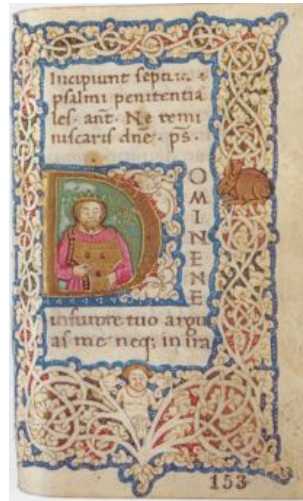 Incipiunt septem
psalmi penitentia
les. ant. Ne remi
niscaris dñe. p̃s.
D
OMINE NE
in furore tuo argu
as me neq; in ira
153